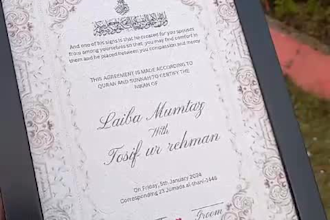 And one of his signs is that he created for you spouses
from among yourselves so that you may find comfort in
them and he placed between you compassion and mercy
THIS AGREEMENT IS MADE ACCORDING TO
QURAN AND SUNNAH TO CERTIFY THE
NIKAH OF
Laiba Mumtaz
With
Tosif ur rehman
On Friday, 5th January 2024
Corresponding 23 Jumada al thani-1445
Groom